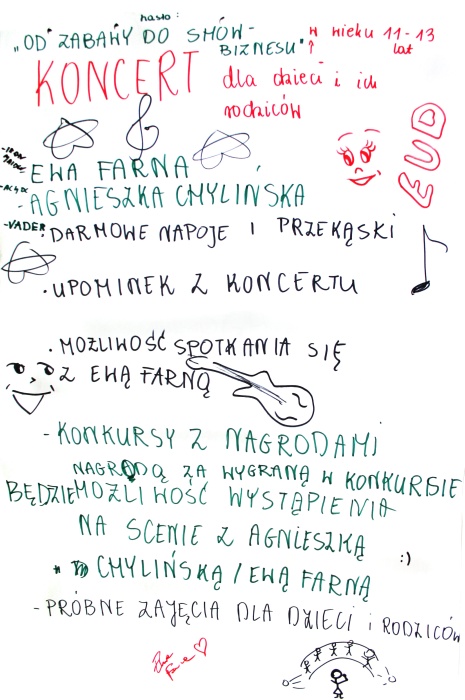 hasło:
"OD ZABAWY DO SHOW-
BIZNESU"
w wieku 11-13
lat
KONCERT dla dzieci i ich
rodziców
FUD
-IRON
MAIDEN
EWA FARNA
-AC/DC
-AGNIESZKA CHYLIŃSKA
-VADER
·DARMOWE NAPOJE I PRZEKĄSKI
·UPOMINEK Z KONCERTU
·MOŻLIWOŚĆ SPOTKANIA SIĘ
Z EWĄ FARNĄ
-KONKURSY Z NAGRODAMI
NAGRODĄ ZA WYGRANĄ W KONKURSIE
BĘDZIE MOŻLIWOŚĆ WYSTĄPIENIA
NA SCENIE Z AGNIESZKĄ
CHYLIŃSKĄ / EWĄ FARNĄ
:)
-PRÓBNE ZAJĘCIA DLA DZIECI i RODZICÓW
Ewa
Farna